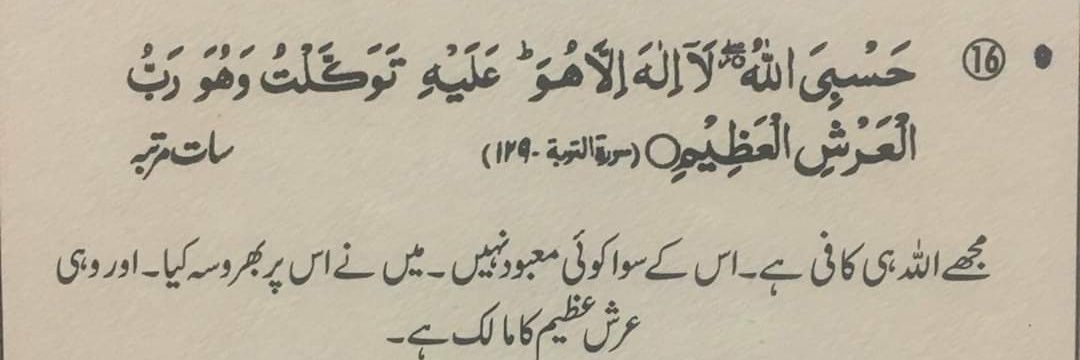 • ⑯ حَسْبِیَ اللّٰهُ ۖ لَآ اِلٰهَ اِلَّا هُوَ ؕ عَلَيْهِ تَوَكَّلْتُ وَهُوَ رَبُّ
الْعَرْشِ الْعَظِيْمِ ○ (سورۃ التوبۃ -۱۲۹) سات مرتبہ
مجھے اللہ ہی کافی ہے۔ اس کے سوا کوئی معبود نہیں۔ میں نے اس پر بھروسہ کیا۔ اور وہی
عرش عظیم کا مالک ہے۔